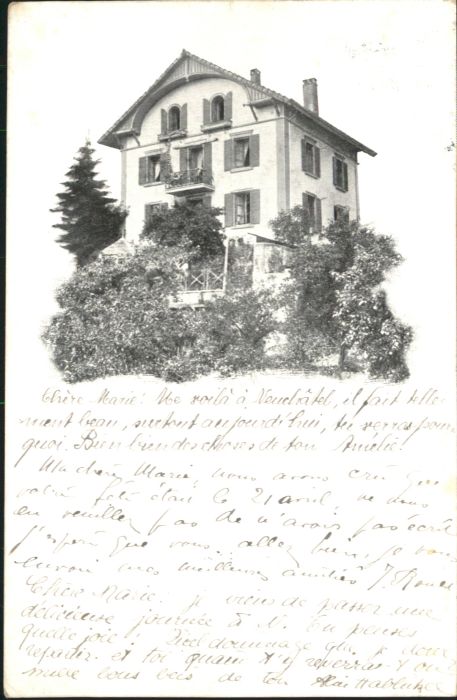 Chère Marie: Me voilà à Neuchâtel, il fait telle-
ment beau, surtout aujourd'hui, tu verras pour
quoi. Bien bien des choses de ton Amélie!
Ma chère Marie, nous avons cru que
votre fête était le 21 avril, ne nous
en veuillez pas de n'avoir pas écrit
j'espère que vous allez bien, je vous
envoie mes meilleures amitiés J.
Chère Marie: je viens de passer une
délicieuse journée à N. tu penses
quelle joie! Quel dommage que je dois
repartir. et toi, quand t'y reverrai-
mille bons de ton